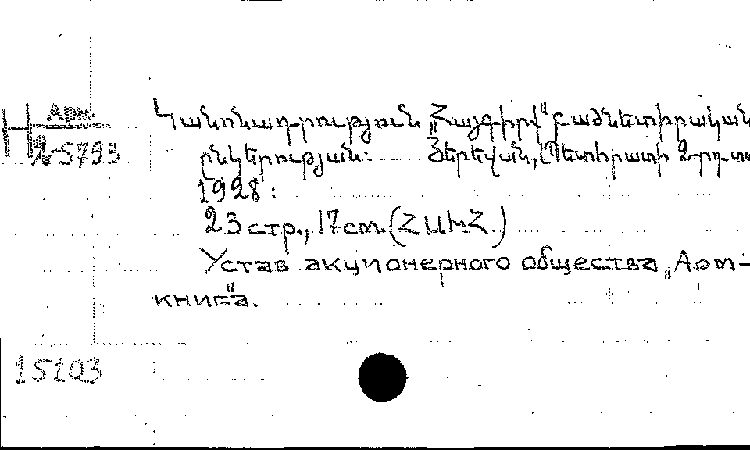 Арм.
N-5793
Կանոնադրություն „Հայգիրք" բաժնետիրական
ընկերության: Յերեվան, Պետհրատի 2-րդ տ
1928:
23 стр., 17 cm. (ՀԱԽՀ.)
Устав акционерного общества „Арм-
книга".
15103